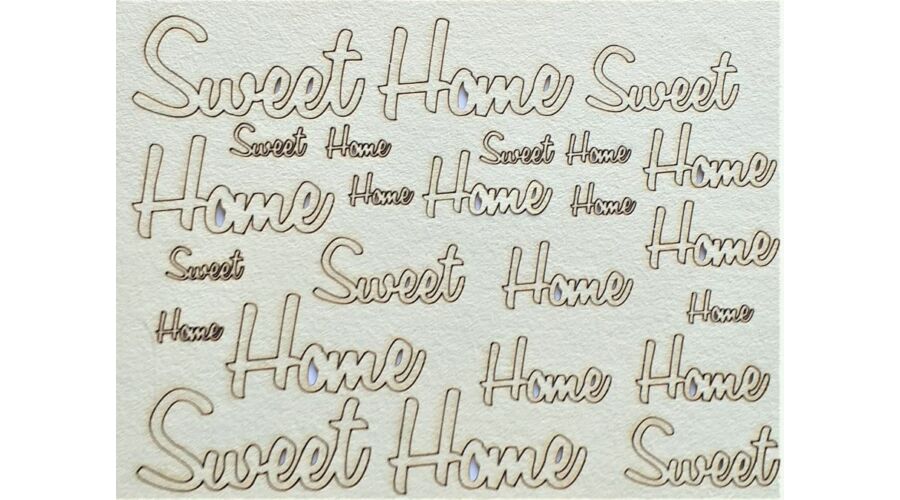 Sweet Home Sweet
Sweet Home Sweet Home Home
Home Home Home Home
Home
Sweet Sweet Home
Home Home
Home Home Home
Sweet Home Sweet